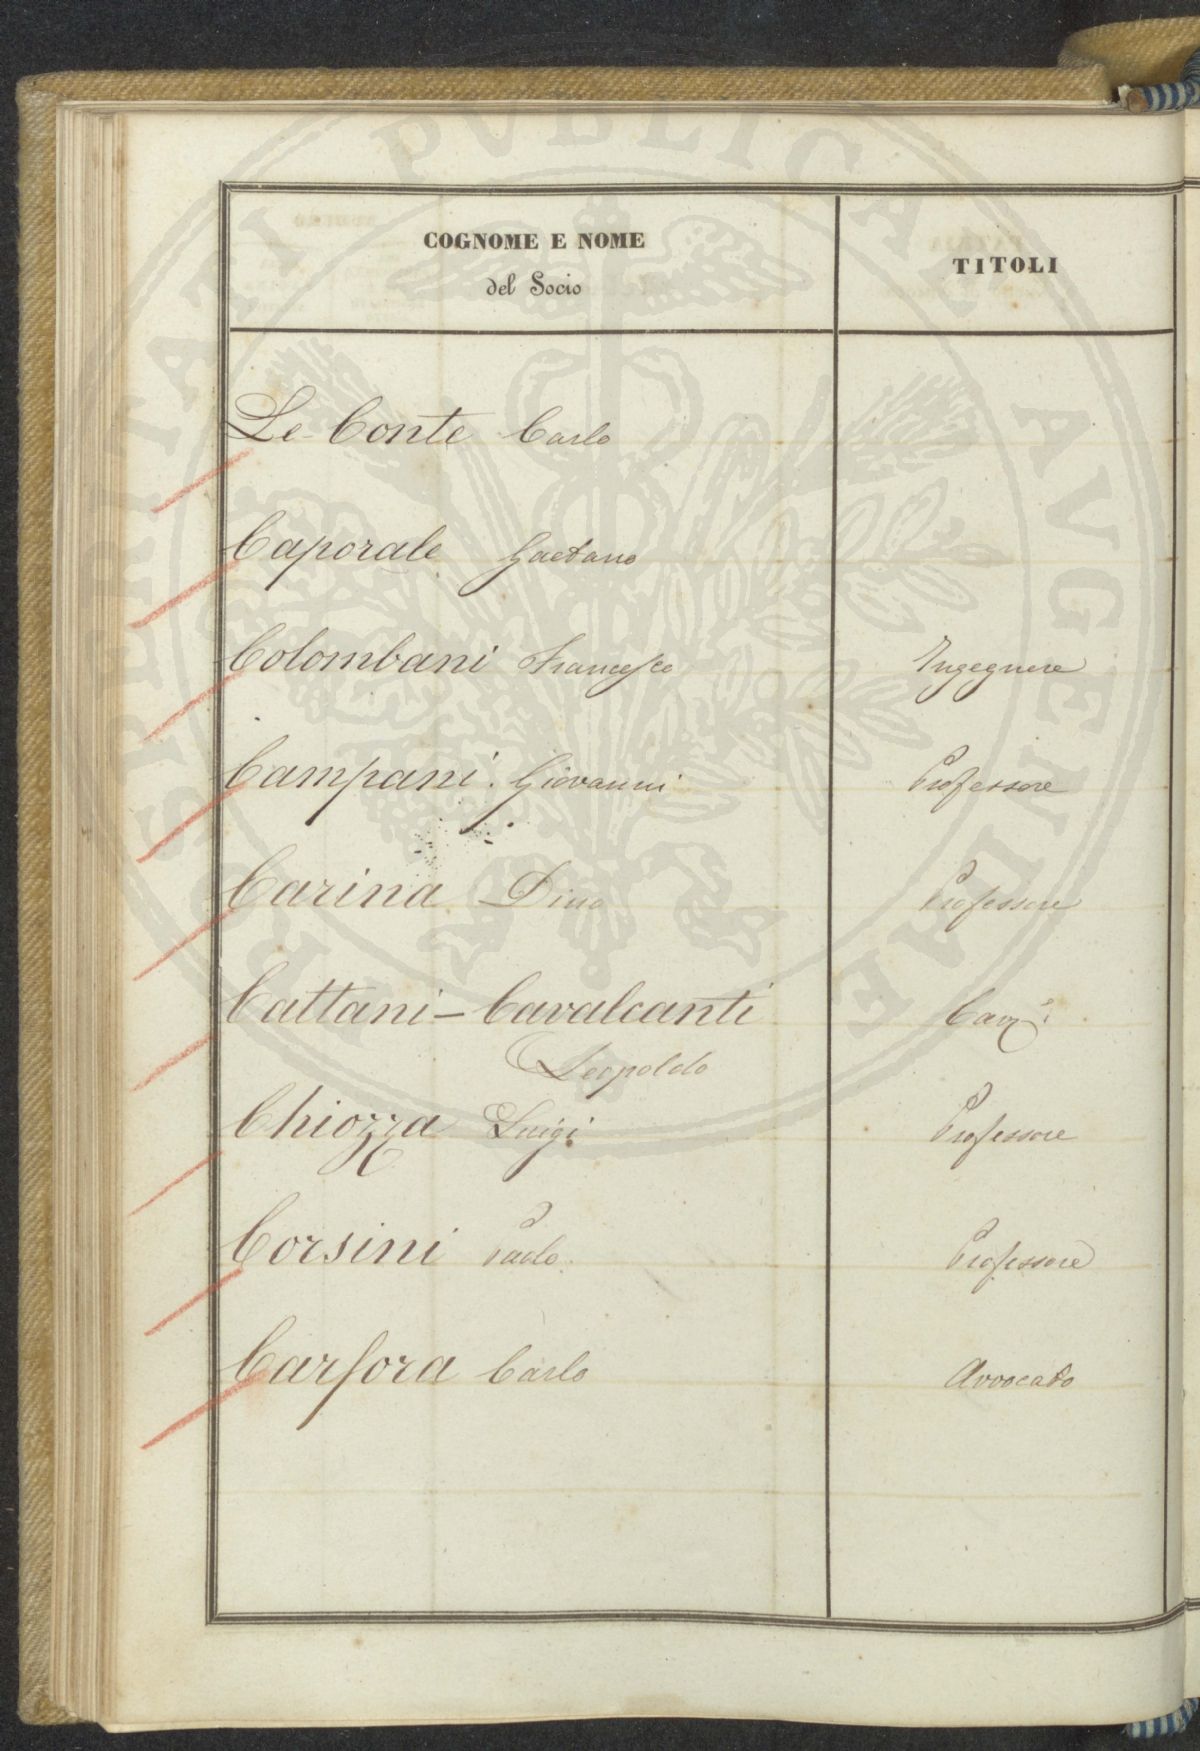 COGNOME E NOME
del Socio
TITOLI
Le-Conte Carlo
Caporale Gaetano
Colombani Francesco Ingegnere
Campani. Giovanni Professore
Carina Dino Professore
Cattani-Cavalcanti
Leopoldo
Chiozza Luigi Professore
Corsini Paolo. Professore
Carfora Carlo Avvocato
PROSPERITATI PVBLICAE AVGENDAE